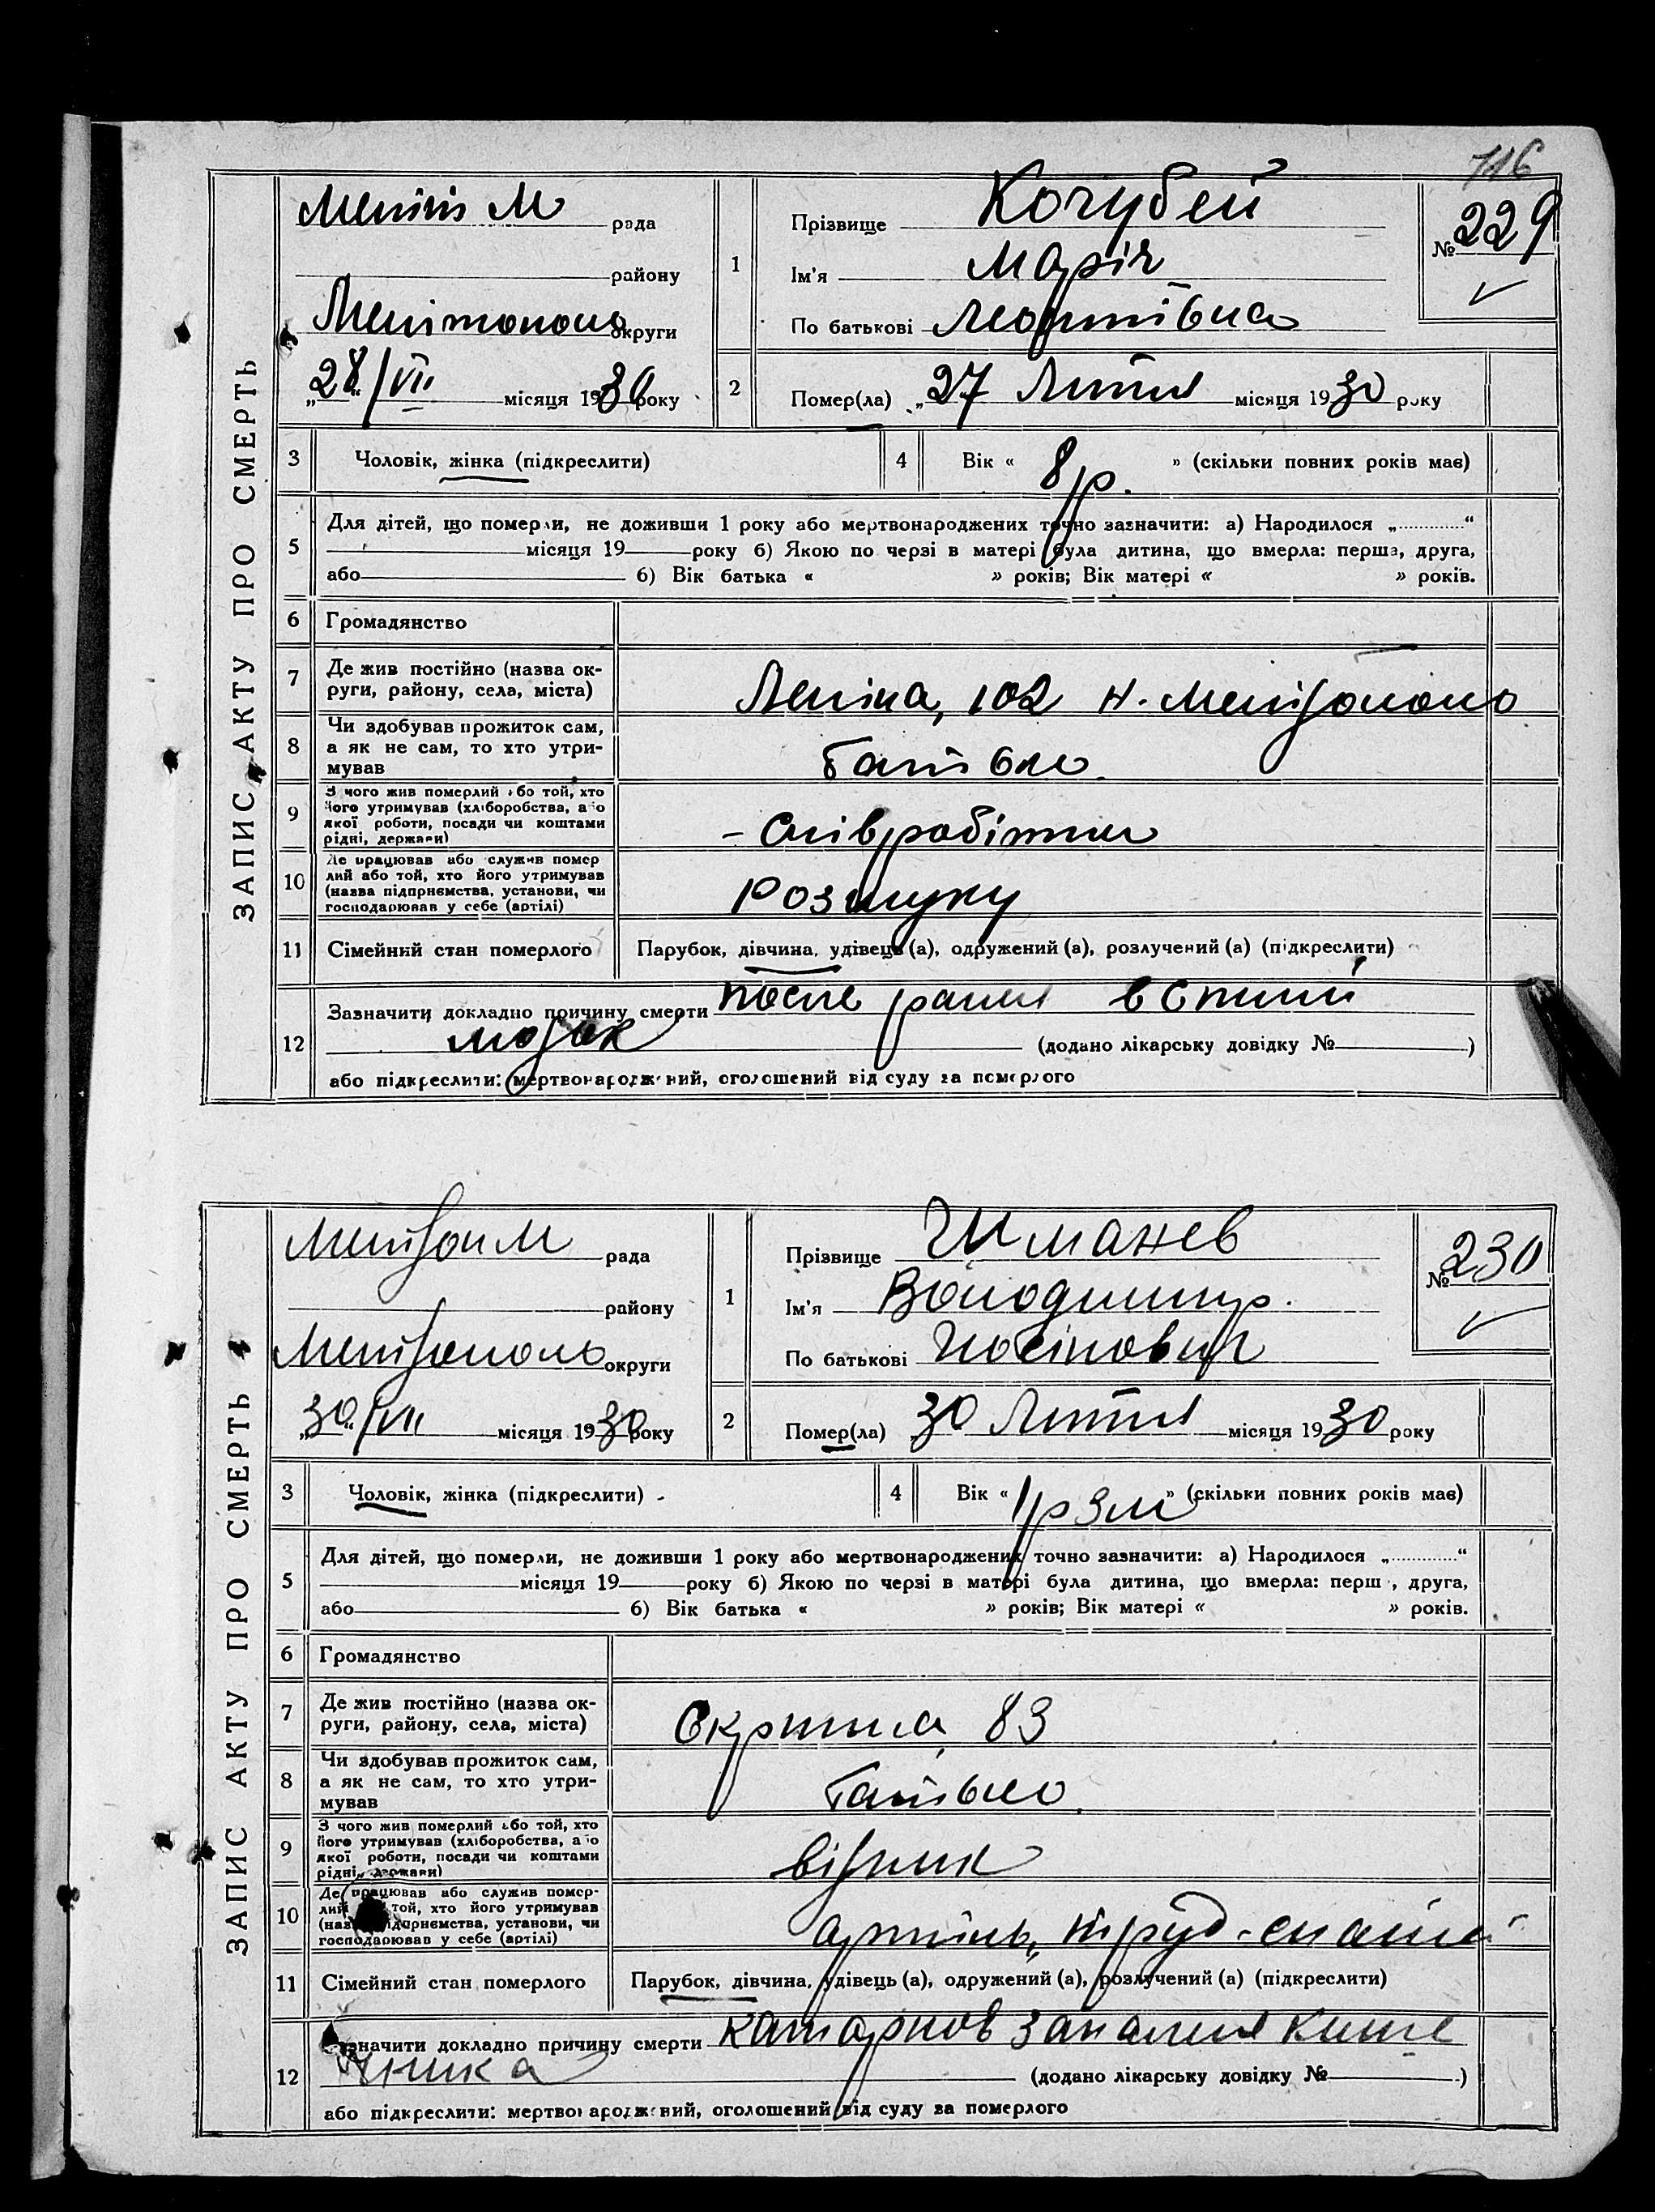 116
ЗАПИС АКТУ ПРО СМЕРТЬ
рада
району
Мелітополь округи
„28“/VII місяця 1930 року
1
Прізвище Кочубей
Ім'я Марія
По батькові Леонтівна
№ 229
2
Помер(ла) „27 Липня місяця 1930 року
3 Чоловік, жінка (підкреслити)
4 Вік « 8 р. » (скільки повних років має)
5 Для дітей, що померли, не доживши 1 року або мертвонароджених точно зазначити: а) Народилося „..............“
місяця 19 року б) Якою по черзі в матері була дитина, що вмерла: перша, друга,
або б) Вік батька « » років; Вік матері « » років.
6 Громадянство
7 Де жив постійно (назва ок-
руги, району, села, міста)
Леніна, 102 Н. Мелітополь
8 Чи здобував прожиток сам,
а як не сам, то хто утри-
мував
батько
9 З чого жив померлий або той, хто
його утримував (хліборобства, або
якої роботи, посади чи коштами
рідні, держави)
- співробітник
10 Де працював або служив помер
лий або той, хто його утримував
(назва підприємства, установи, чи
господарював у себе (артілі)
Розшуку
11 Сімейний стан померлого Парубок, дівчина, удівець (а), одружений (а), розлучений (а) (підкреслити)
12 Зазначити докладно причину смерти после
(додано лікарську довідку № )
або підкреслити: мертвонароджений, оголошений від суду за померлого
ЗАПИС АКТУ ПРО СМЕРТЬ
рада
району
Мелітополь округи
„30“/VII місяця 1930 року
1
Прізвище
Ім'я Володимир.
По батькові
№ 230
2
Помер(ла) „30 Липня місяця 1930 року
3 Чоловік, жінка (підкреслити)
4 Вік « 1 р 3 м » (скільки повних років має)
5 Для дітей, що померли, не доживши 1 року або мертвонароджених точно зазначити: а) Народилося „..............“
місяця 19 року б) Якою по черзі в матері була дитина, що вмерла: перш , друга,
або б) Вік батька « » років; Вік матері « » років.
6 Громадянство
7 Де жив постійно (назва ок-
руги, району, села, міста)
83
8 Чи здобував прожиток сам,
а як не сам, то хто утри-
мував
батько
9 З чого жив померлий або той, хто
його утримував (хліборобства, або
якої роботи, посади чи коштами
рідні, держави)
візник
10 Де працював або служив помер-
лий той, хто його утримував
(назва підприємства, установи, чи
господарював у себе (артілі)
артіль,
11 Сімейний стан померлого Парубок, дівчина, удівець (а), одружений (а), розлучений (а) (підкреслити)
12 Зазначити докладно причину смерти катарнов запалення кише
чника (додано лікарську довідку № )
або підкреслити: мертвонароджений, оголошений від суду за померлого